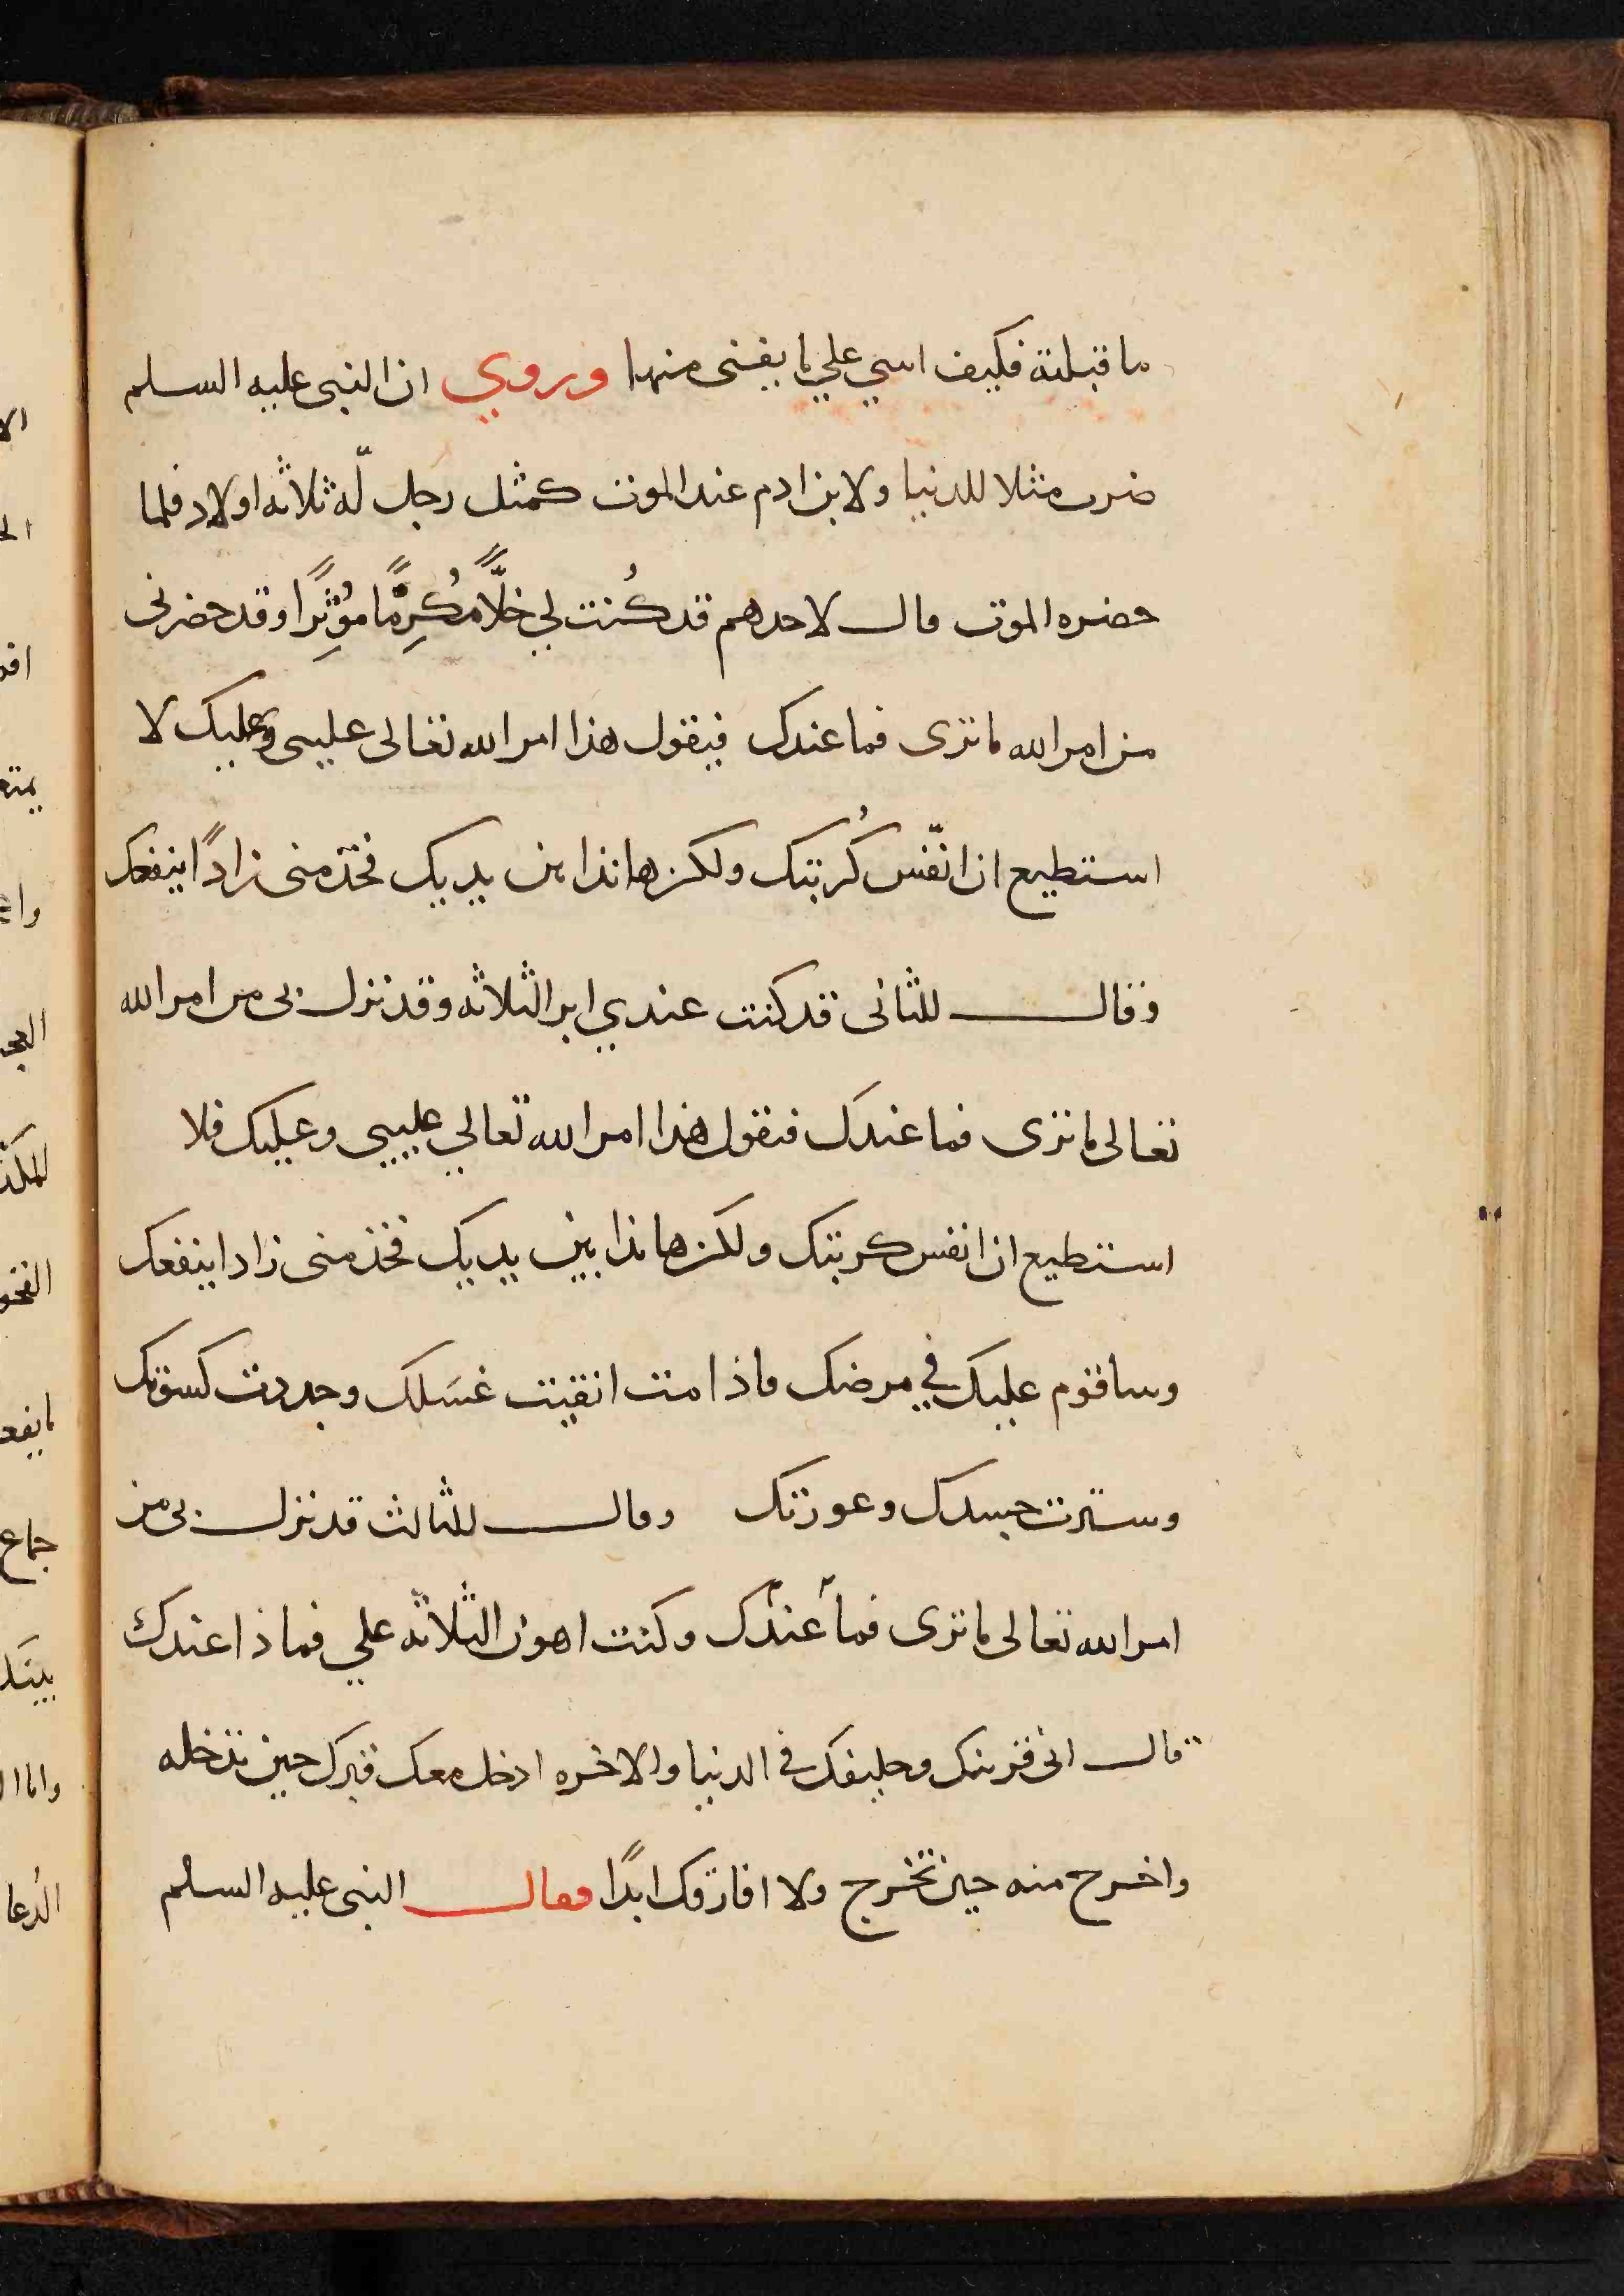 ما قبلته فكيف اسي علي ما يفنى منها وروي ان النبى عليه السلم
ضرب مثلا للدنيا ولابن ادم عند الموت كمثل رجل لّه ثلاثه اولاد فلما
حضره الموت قال لاحدهم قد كُنت لي خلًّا مُكرِمًا مُؤثِرًا وقد حضرنى
من امر الله ما ترى فما عندك فيقول هذا امر الله تعالى عليى وعليك لا
استطيع ان انفّس كُربتك ولكن هانذا بين يديك فخذ منى زادًا ينفعك
وقال للثانى قد كنت عندي ابر الثلاثه وقد نزل بى من امر الله
تعالى ما ترى فما عندك فيقول هذا امر الله تعالي عليى وعليك فلا
استطيع ان انفس كربتك ولكن هانذا بين يديك فخذ منى زادا ينفعك
وساقوم عليك في مرضك فاذا مت انقيت غسَلك وجددت كسوتك
وسترت جسدك وعورتك وقال للثالث قد نزل بى من
امر الله تعالى ما ترى فما عندك وكنت اهون الثلاثه علي فماذا عندك
قال انى قرينك وحليفك في الدنيا والاخره ادخل معك قبرك حين تدخله
واخرج منه حين تخرج ولا افارقك ابدًا فقال النبى عليه السلم
الا
افد
يمتع
الفخو
جماع
الدُعا